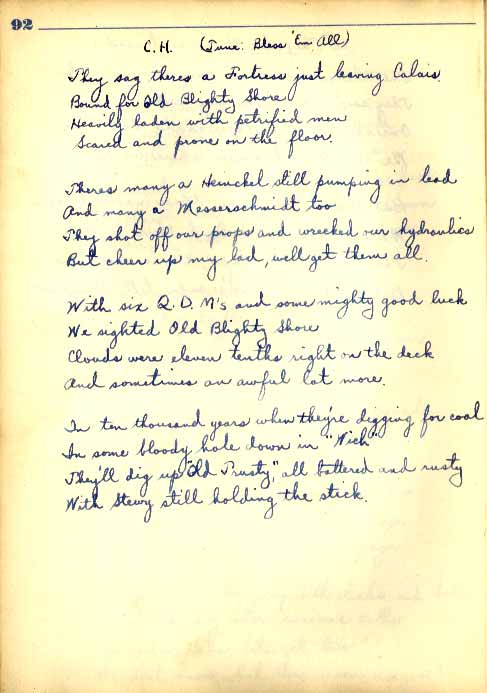 92
C.H. (Tune: Bless 'Em All)
They say theres a Fortress just leaving Calais
Bound for Old Blighty Shore
Heavily laden with petrified men
Scared and prone on the floor.
Theres many a Heinckel still pumping in lead
And many a Messerschmidt too
They shot off our props and wrecked our hydraulics
But cheer up my lad, we'll get them all.
With six Q.D.M's and some mighty good luck
We sighted Old Blighty Shore
Clouds were eleven tenths right on the deck
And sometimes an awful lot more.
In ten thousand years when they're digging for coal
In some bloody hole down in "Wich"
They'll dig up "Old Trusty," all battered and rusty
With Stewy still holding the stick.